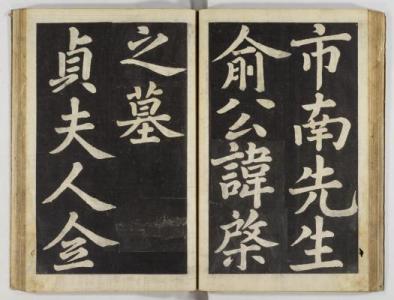 市南先生
俞公諱棨
之墓
貞夫人金